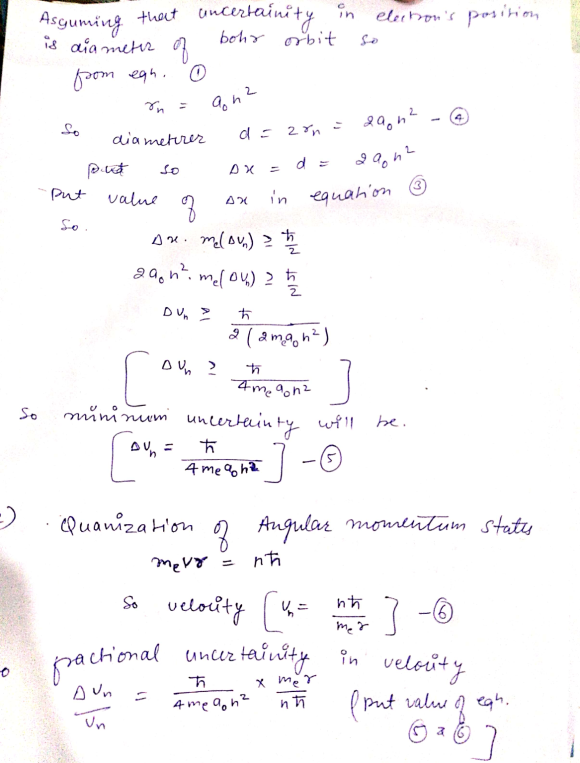 Asguming that uncertainity in electron's position
is diameter of bohr orbit so
from eqn. ①
rn = a₀n²
So diametrer d = 2rn = 2a₀n² - ④
put so Δx = d = 2a₀n²
Put value of Δx in equation ③
So.
Δx. me(ΔVn) ≥ ħ/2
2a₀n². me(ΔVn) ≥ ħ/2
ΔVn ≥ ħ/2(2mea₀n²)
[ΔVn ≥ ħ/4mea₀n²]
So minimum uncertainty will be.
[ΔVn = ħ/4mea₀n²] - ⑤
Quanization of Angular momentum states
mevr = nħ
So velocity [Vn = nħ/mer] - ⑥
fractional uncertainity in velocity
ΔVn/Vn = ħ/4mea₀n² × mer/nħ (put value of eqn.
⑤ & ⑥]